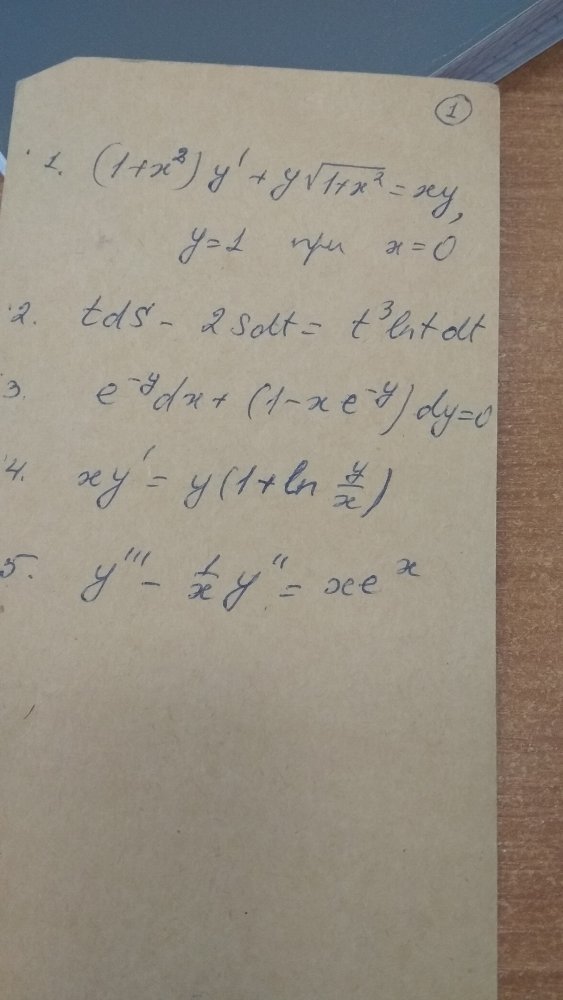 1
1. (1+x²) y' + y√(1+x²) = xy,
y=1 при x=0
2. tds - 2sdt = t³lnt dt
3. e^(-y)dx + (1-xe^(-y))dy=0
4. xy' = y(1+ln y/x)
5. y''' - 1/x y'' = xe^x